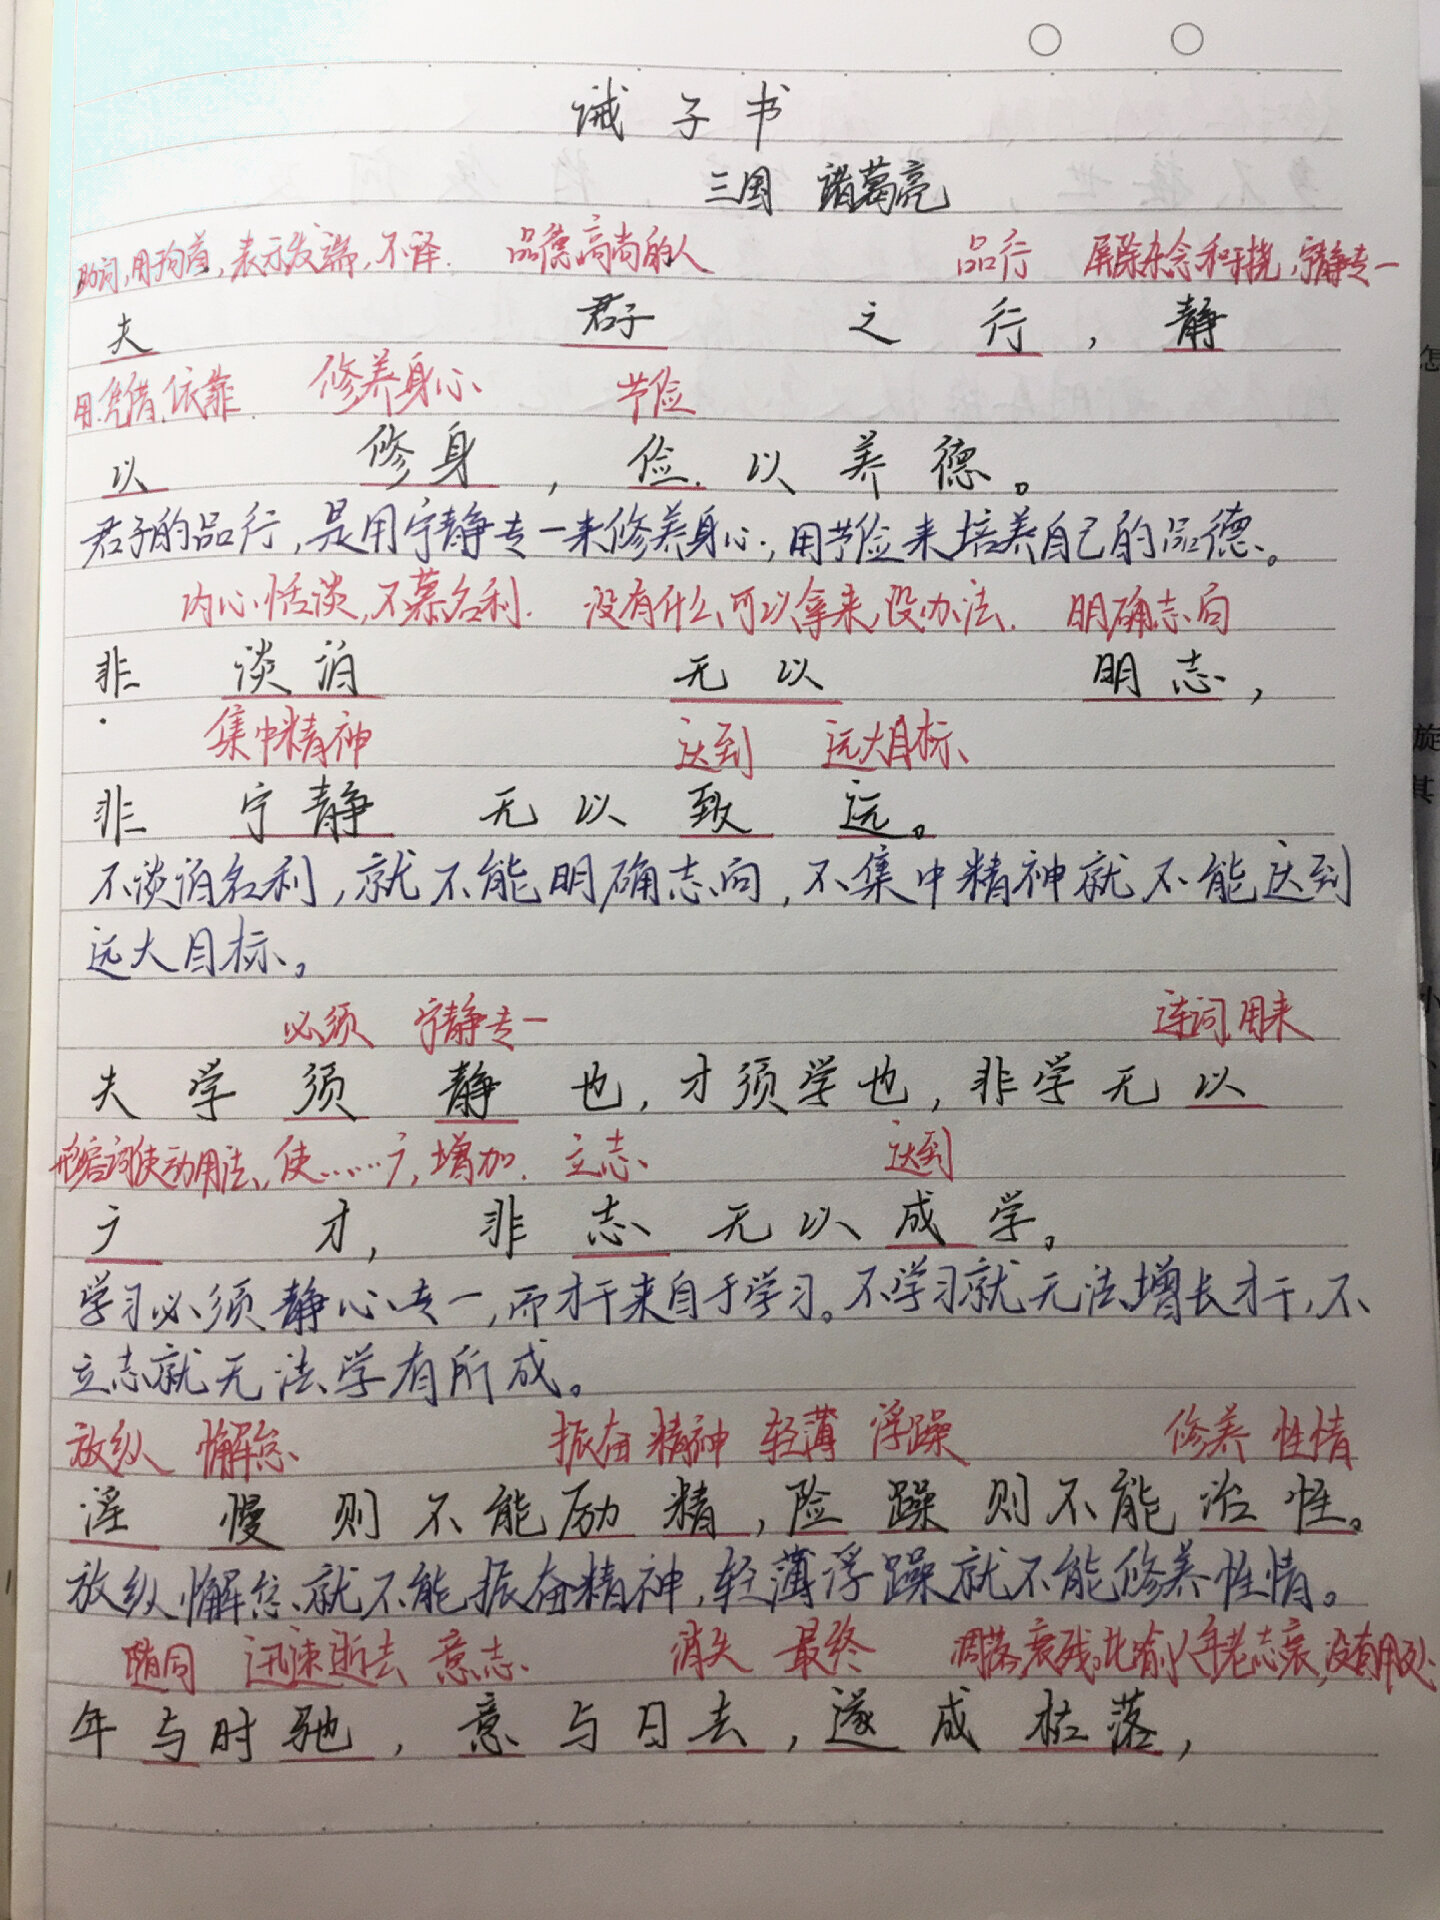 诫子书
三国 诸葛亮
助词,用于句首,表示发端,不译. 品德高尚的人 品行 屏除杂念和干扰,宁静专一
夫 君子 之 行,静
用.凭借.依靠. 修养身心 节俭
以 修身,俭以养德。
君子的品行,是用宁静专一来修养身心,用节俭来培养自己的品德。
内心恬淡,不慕名利. 没有什么可以拿来,没办法. 明确志向
非 淡泊 无以 明志,
集中精神 达到 远大目标
非 宁静 无以 致 远。
不淡泊名利,就不能明确志向,不集中精神就不能达到
远大目标。
必须 宁静专一 连词,用来
夫学须静也,才须学也,非学无以
形容词使动用法,使……广,增加. 立志 达到
广 才,非志无以成学。
学习必须静心专一,而才干来自于学习。不学习就无法增长才干,不
立志就无法学有所成。
放纵 懈怠 振奋 精神 轻薄 浮躁 修养 性情
淫慢则不能励精,险躁则不能治性。
放纵懈怠就不能振奋精神,轻薄浮躁就不能修养性情。
随同 迅速逝去 意志 消失 最终 凋落,衰残,比喻人年老志衰,没有用处
年与时驰,意与日去,遂成枯落,